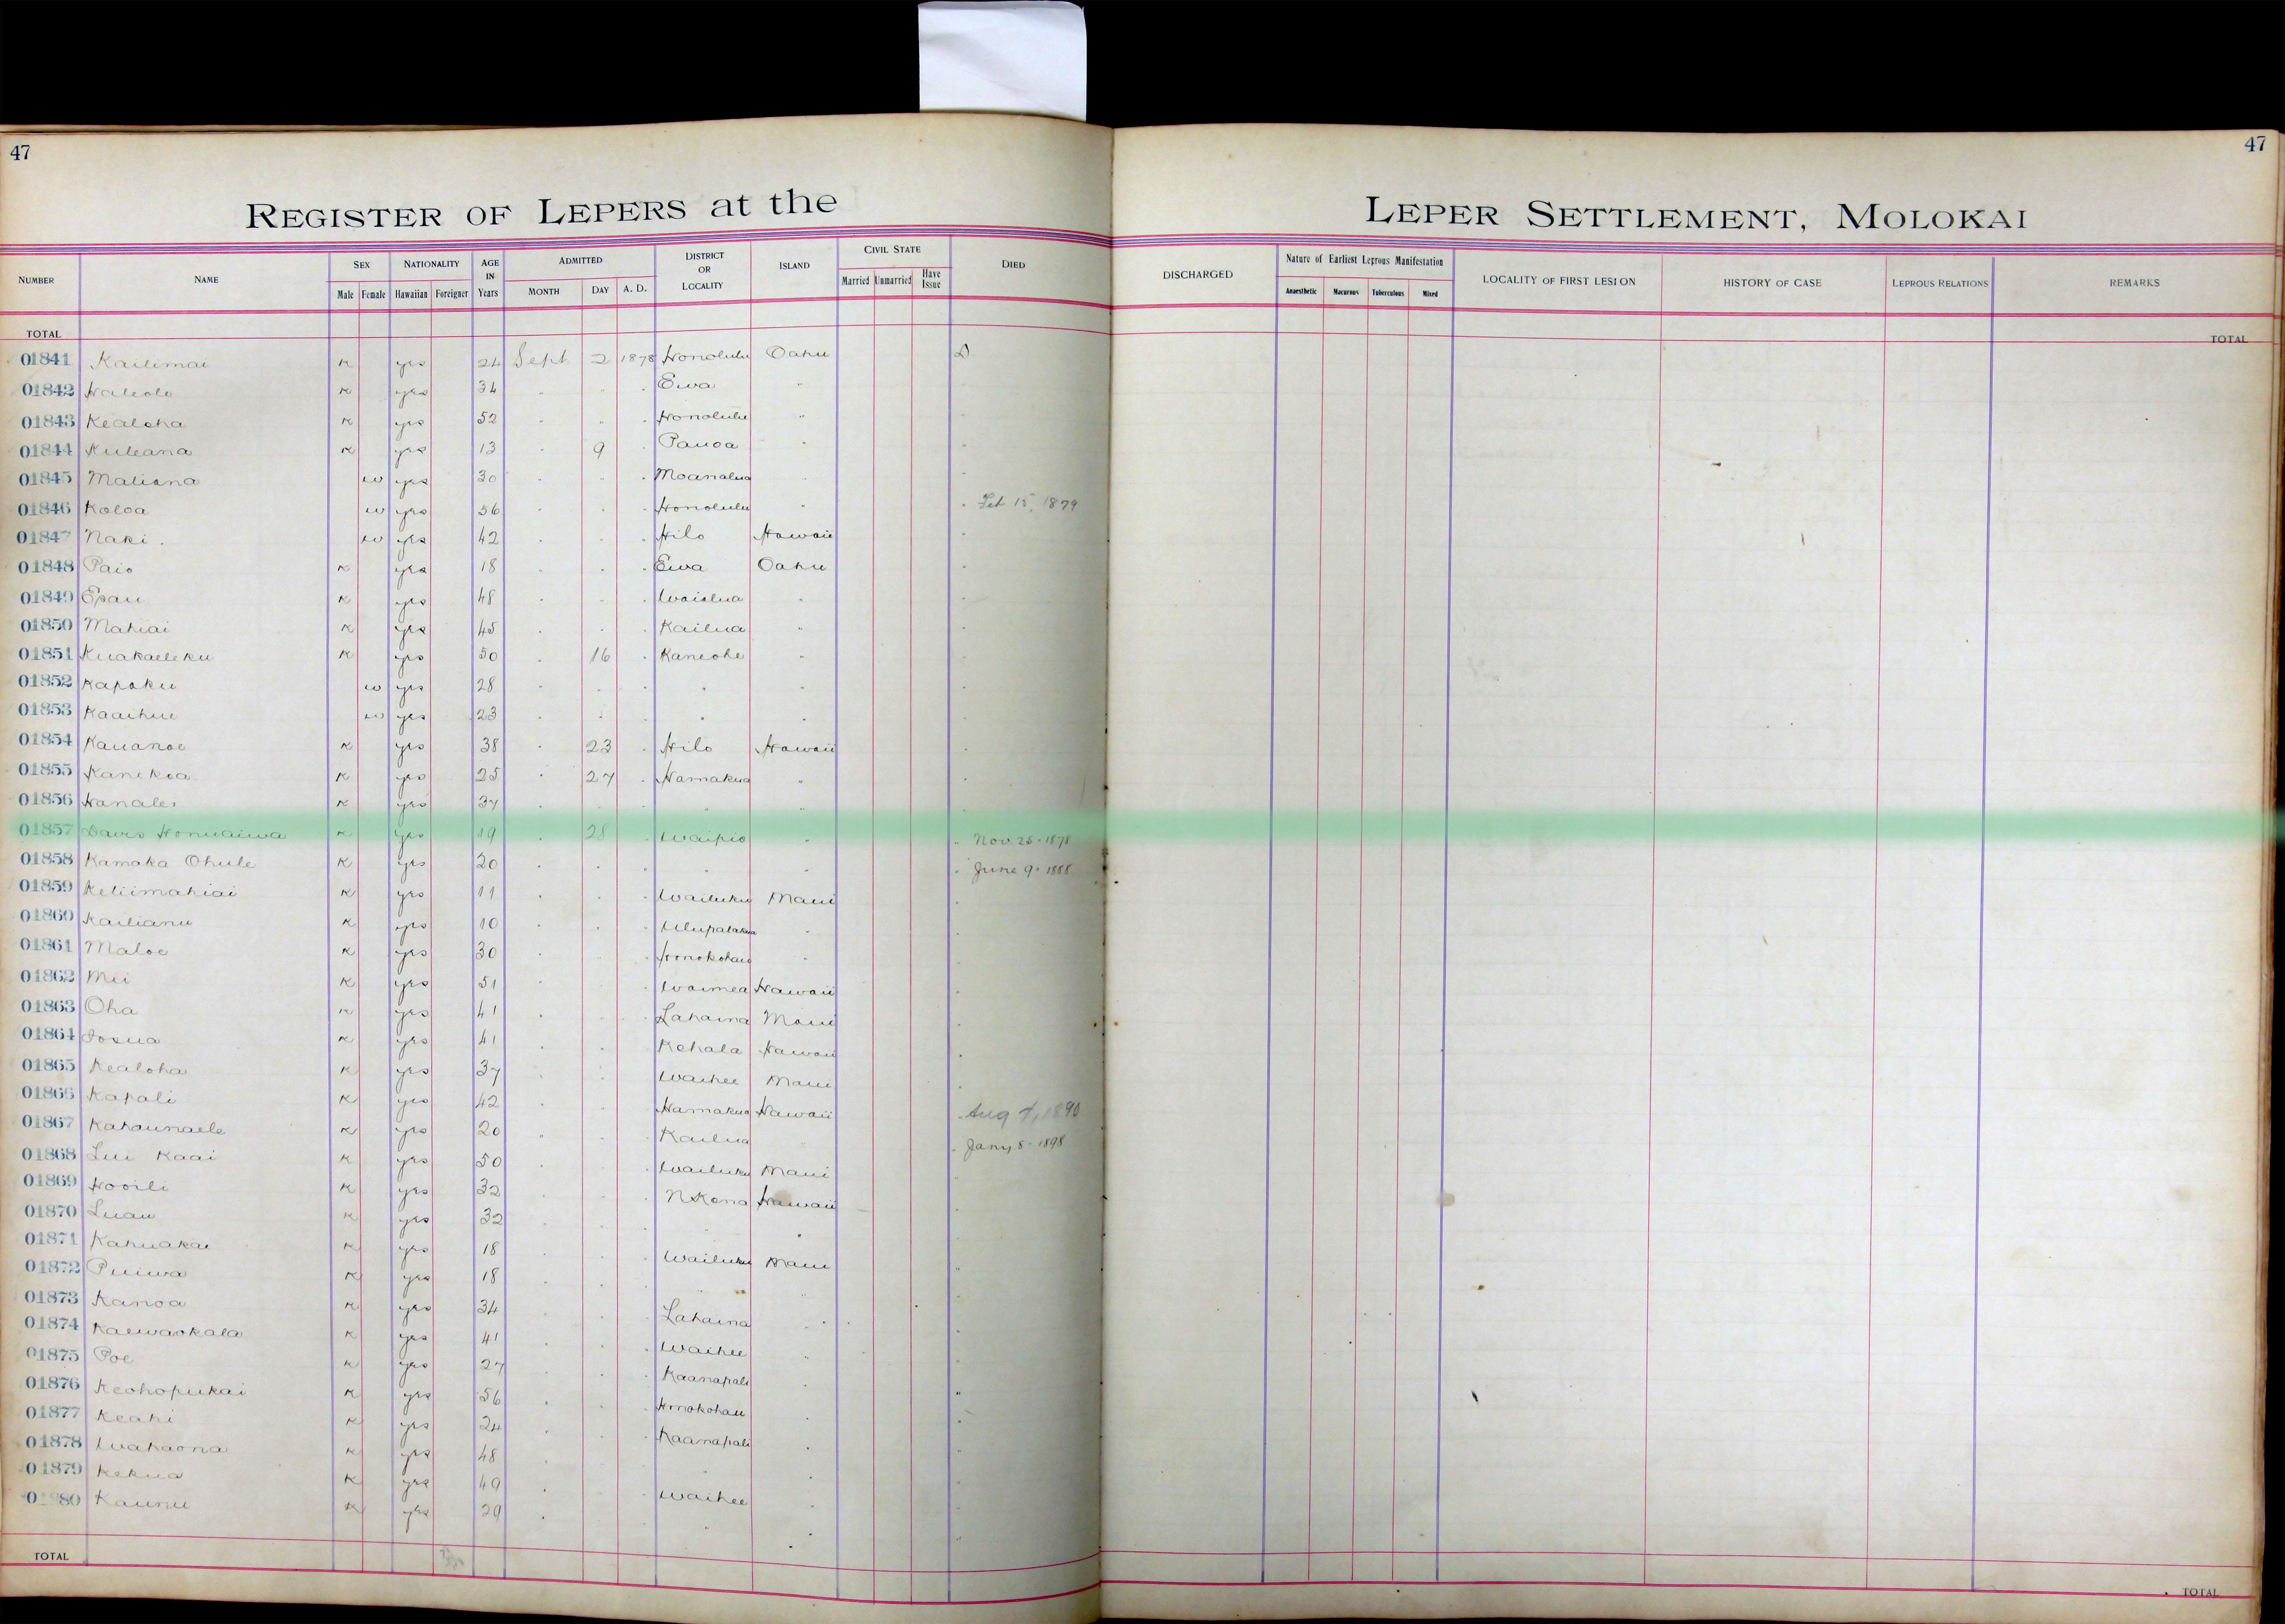 47
47
REGISTER OF LEPERS at the LEPER SETTLEMENT, MOLOKAI
NUMBER NAME SEX Male Female NATIONALITY Hawaiian Foreigner AGE IN Years ADMITTED MONTH DAY A. D. DISTRICT OR LOCALITY ISLAND CIVIL STATE Married Unmarried Have Issue DIED DISCHARGED Nature of Earliest Leprous Manifestation Anaesthetic Macurous Tuberculous Mixed LOCALITY OF FIRST LESION HISTORY OF CASE LEPROUS RELATIONS REMARKS
TOTAL TOTAL
01841 Kailimai K yes 24 Sept 2 1878 Honolulu Oahu D
01842 Haleolo K yes 34 " " " Ewa "
01843 Kealoha K yes 52 " " " Honolulu "
01844 Kuleana K yes 13 " 9 " Pauoa " "
01845 Maliana w yes 30 " " " Moanalua " "
01846 Koloa w yes 56 " " " Honolulu " " Feb 15, 1879
01847 Naki w yes 42 " " " Hilo Hawaii "
01848 Paio K yes 18 " " " Ewa Oahu "
01849 Epau K yes 48 " " " Waialua " "
01850 Mahiai K yes 45 " " " Kailua " "
01851 Kuakaeleku K yes 50 " 16 " Kaneohe " "
01852 Kapoku w yes 28 " " " " " "
01853 Kaaihue w yes 23 " " " " " "
01854 Kauanoe K yes 38 " 23 " Hilo Hawaii "
01855 Kanekoa K yes 25 " 27 " Hamakua " "
01856 Hanalei K yes 37 " " " " " "
01857 Davis Honuaiwa K yes 19 " 28 " Waipio " " Nov. 25 - 1878
01858 Kamaka Ohule K yes 20 " " " " " " June 9 - 1888
01859 Keliimahiai K yes 11 " " " Wailuku Maui "
01860 Kailianu K yes 10 " " " Ulupalakua " "
01861 Maloe K yes 30 " " " Honokohau " "
01862 Mii K yes 51 " " " Waimea Hawaii "
01863 Oha K yes 41 " " " Lahaina Maui "
01864 Iosua K yes 41 " " " Kohala Hawaii "
01865 Kealoha K yes 37 " " " Waihee Maui "
01866 Kapali K yes 42 " " " Hamakua Hawaii " Aug 7, 1890
01867 Kahaunaele K yes 20 " " " Kailua " " Jany 8 - 1898
01868 Lui Kaai K yes 50 " " " Wailuku Maui "
01869 Hooili K yes 32 " " " N Kona Hawaii "
01870 Luau K yes 32 " " " " " "
01871 Kahuakai K yes 18 " " " Wailuku Maui "
01872 Puiwa K yes 18 " " " " " "
01873 Kanoa K yes 34 " " " Lahaina " "
01874 Kaewaokala K yes 41 " " " Waihee " "
01875 Poe K yes 27 " " " Kaanapali " "
01876 Keohopukai K yes 56 " " " Honokohau " "
01877 Keahi K yes 24 " " " Kaanapali " "
01878 Wahaona K yes 48 " " " " " "
01879 Kekua K yes 49 " " " Waihee " "
01880 Kaunu K yes 29 " " " " " "
TOTAL TOTAL